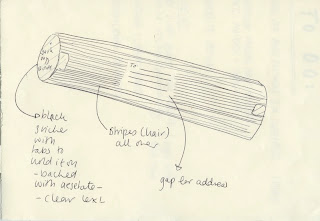 To
black
sticker
with
tabs to
hold it on
- backed
with acetate -
- clear text
stripes (hair)
all over
gap for address